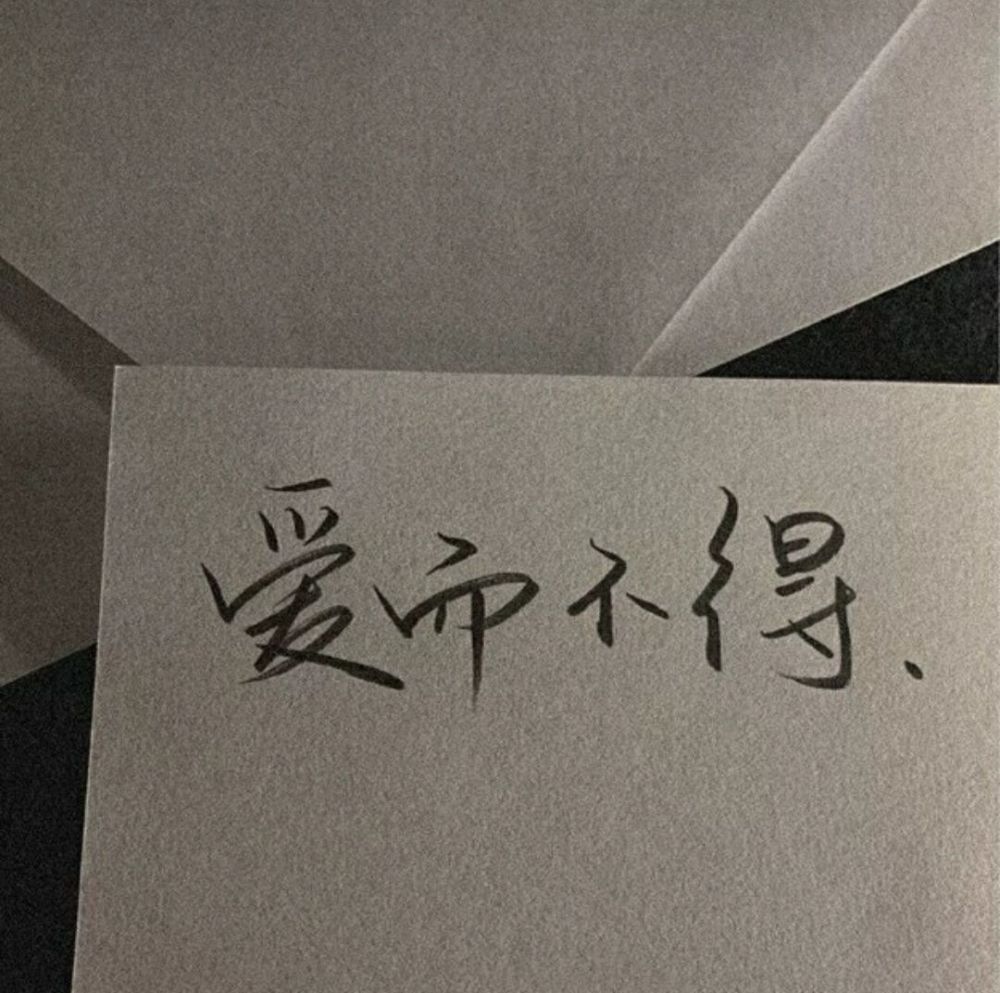 爱而不得.